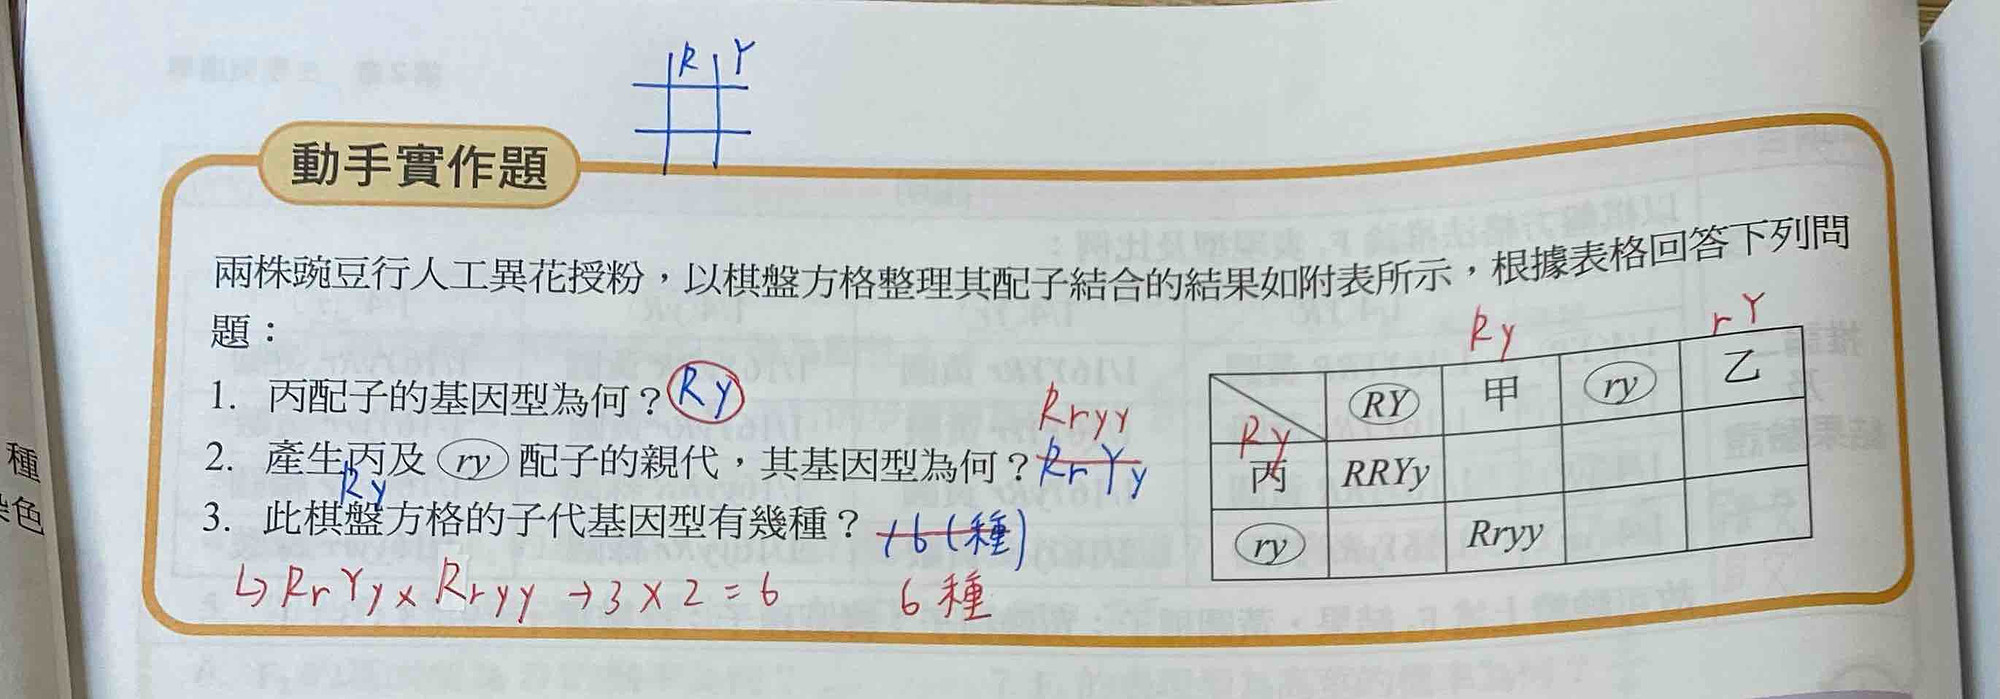 R Y
動手實作題
兩株豌豆行人工異花授粉，以棋盤方格整理其配子結合的結果如附表所示，根據表格回答下列問
題：
1. 丙配子的基因型為何？Ry
Rryy
2. 產生丙及 ry 配子的親代，其基因型為何？RrYy
Ry
3. 此棋盤方格的子代基因型有幾種？16(種)
↳ RrYy × Rryy → 3 × 2 = 6 6種
Ry rY
RY 甲 ry 乙
Ry
丙 RRYy
ry Rryy
種
色